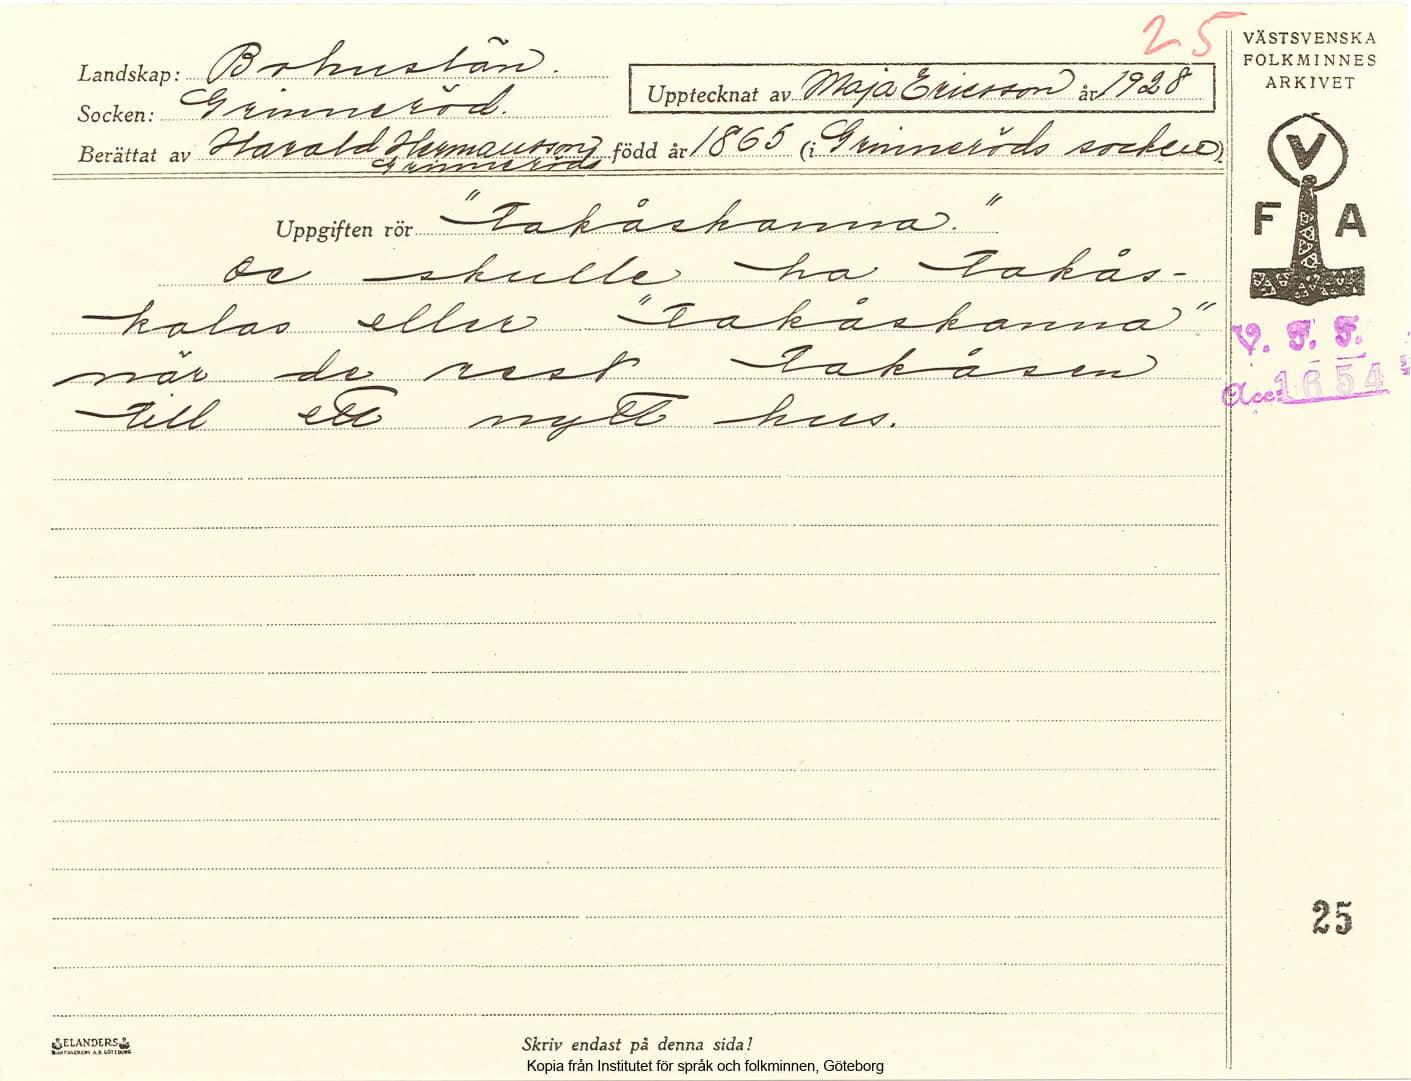 25
Landskap: Bohuslän.
Socken: Grinneröd.
Upptecknat av Maja Ericsson år 1928
Berättat av Harald Hermansson, född år 1865 (i Grinneröds socken)
Grinneröds
Uppgiften rör "Takåskanna."
De skulle ha takås-
kalas eller "takåskanna"
när de rest takåsen
till ett nytt hus.
VÄSTSVENSKA
FOLKMINNES
ARKIVET
V
F A
V. F. F.
Acc: 1654
25
ELANDERS
Skriv endast på denna sida!
Kopia från Institutet för språk och folkminnen, Göteborg